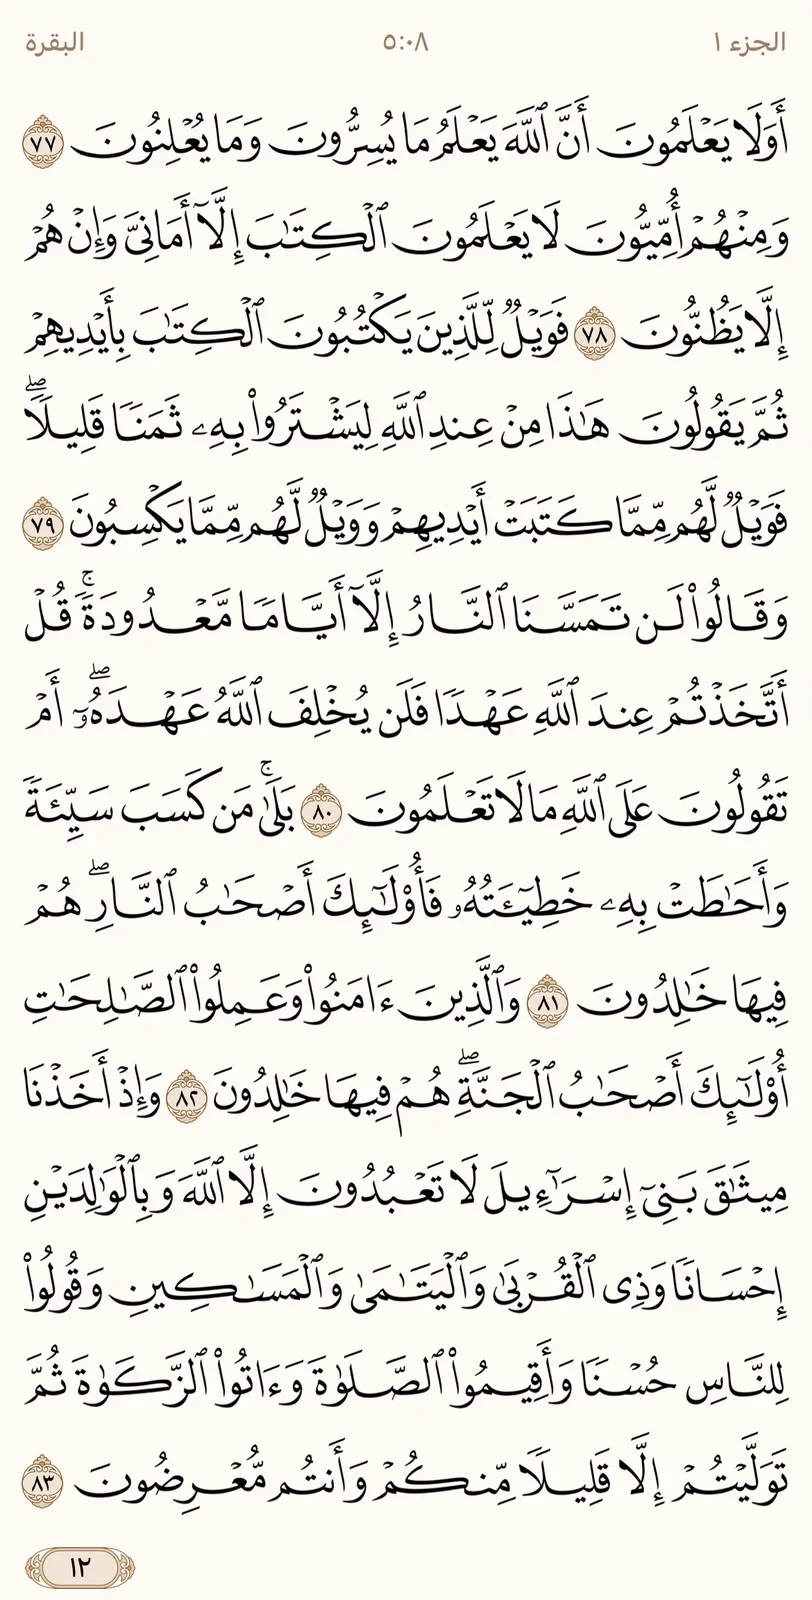 الجزء ١ ٥:٠٨ البقرة
أَوَلَا يَعْلَمُونَ أَنَّ ٱللَّهَ يَعْلَمُ مَا يُسِرُّونَ وَمَا يُعْلِنُونَ ٧٧
وَمِنْهُمْ أُمِّيُّونَ لَا يَعْلَمُونَ ٱلْكِتَـٰبَ إِلَّآ أَمَانِىَّ وَإِنْ هُمْ
إِلَّا يَظُنُّونَ ٧٨ فَوَيْلٌ لِّلَّذِينَ يَكْتُبُونَ ٱلْكِتَـٰبَ بِأَيْدِيهِمْ
ثُمَّ يَقُولُونَ هَـٰذَا مِنْ عِندِ ٱللَّهِ لِيَشْتَرُوا۟ بِهِۦ ثَمَنًا قَلِيلًا ۖ
فَوَيْلٌ لَّهُم مِّمَّا كَتَبَتْ أَيْدِيهِمْ وَوَيْلٌ لَّهُم مِّمَّا يَكْسِبُونَ ٧٩
وَقَالُوا۟ لَن تَمَسَّنَا ٱلنَّارُ إِلَّآ أَيَّامًا مَّعْدُودَةً ۚ قُلْ
أَتَّخَذْتُمْ عِندَ ٱللَّهِ عَهْدًا فَلَن يُخْلِفَ ٱللَّهُ عَهْدَهُۥٓ ۖ أَمْ
تَقُولُونَ عَلَى ٱللَّهِ مَا لَا تَعْلَمُونَ ٨٠ بَلَىٰ ۚ مَن كَسَبَ سَيِّئَةً
وَأَحَـٰطَتْ بِهِۦ خَطِيٓـَٔتُهُۥ فَأُو۟لَـٰٓئِكَ أَصْحَـٰبُ ٱلنَّارِ ۖ هُمْ
فِيهَا خَـٰلِدُونَ ٨١ وَٱلَّذِينَ ءَامَنُوا۟ وَعَمِلُوا۟ ٱلصَّـٰلِحَـٰتِ
أُو۟لَـٰٓئِكَ أَصْحَـٰبُ ٱلْجَنَّةِ ۖ هُمْ فِيهَا خَـٰلِدُونَ ٨٢ وَإِذْ أَخَذْنَا
مِيثَـٰقَ بَنِىٓ إِسْرَٰٓءِيلَ لَا تَعْبُدُونَ إِلَّا ٱللَّهَ وَبِٱلْوَٰلِدَيْنِ
إِحْسَانًا وَذِى ٱلْقُرْبَىٰ وَٱلْيَتَـٰمَىٰ وَٱلْمَسَـٰكِينِ وَقُولُوا۟
لِلنَّاسِ حُسْنًا وَأَقِيمُوا۟ ٱلصَّلَوٰةَ وَءَاتُوا۟ ٱلزَّكَوٰةَ ثُمَّ
تَوَلَّيْتُمْ إِلَّا قَلِيلًا مِّنكُمْ وَأَنتُم مُّعْرِضُونَ ٨٣
١٢